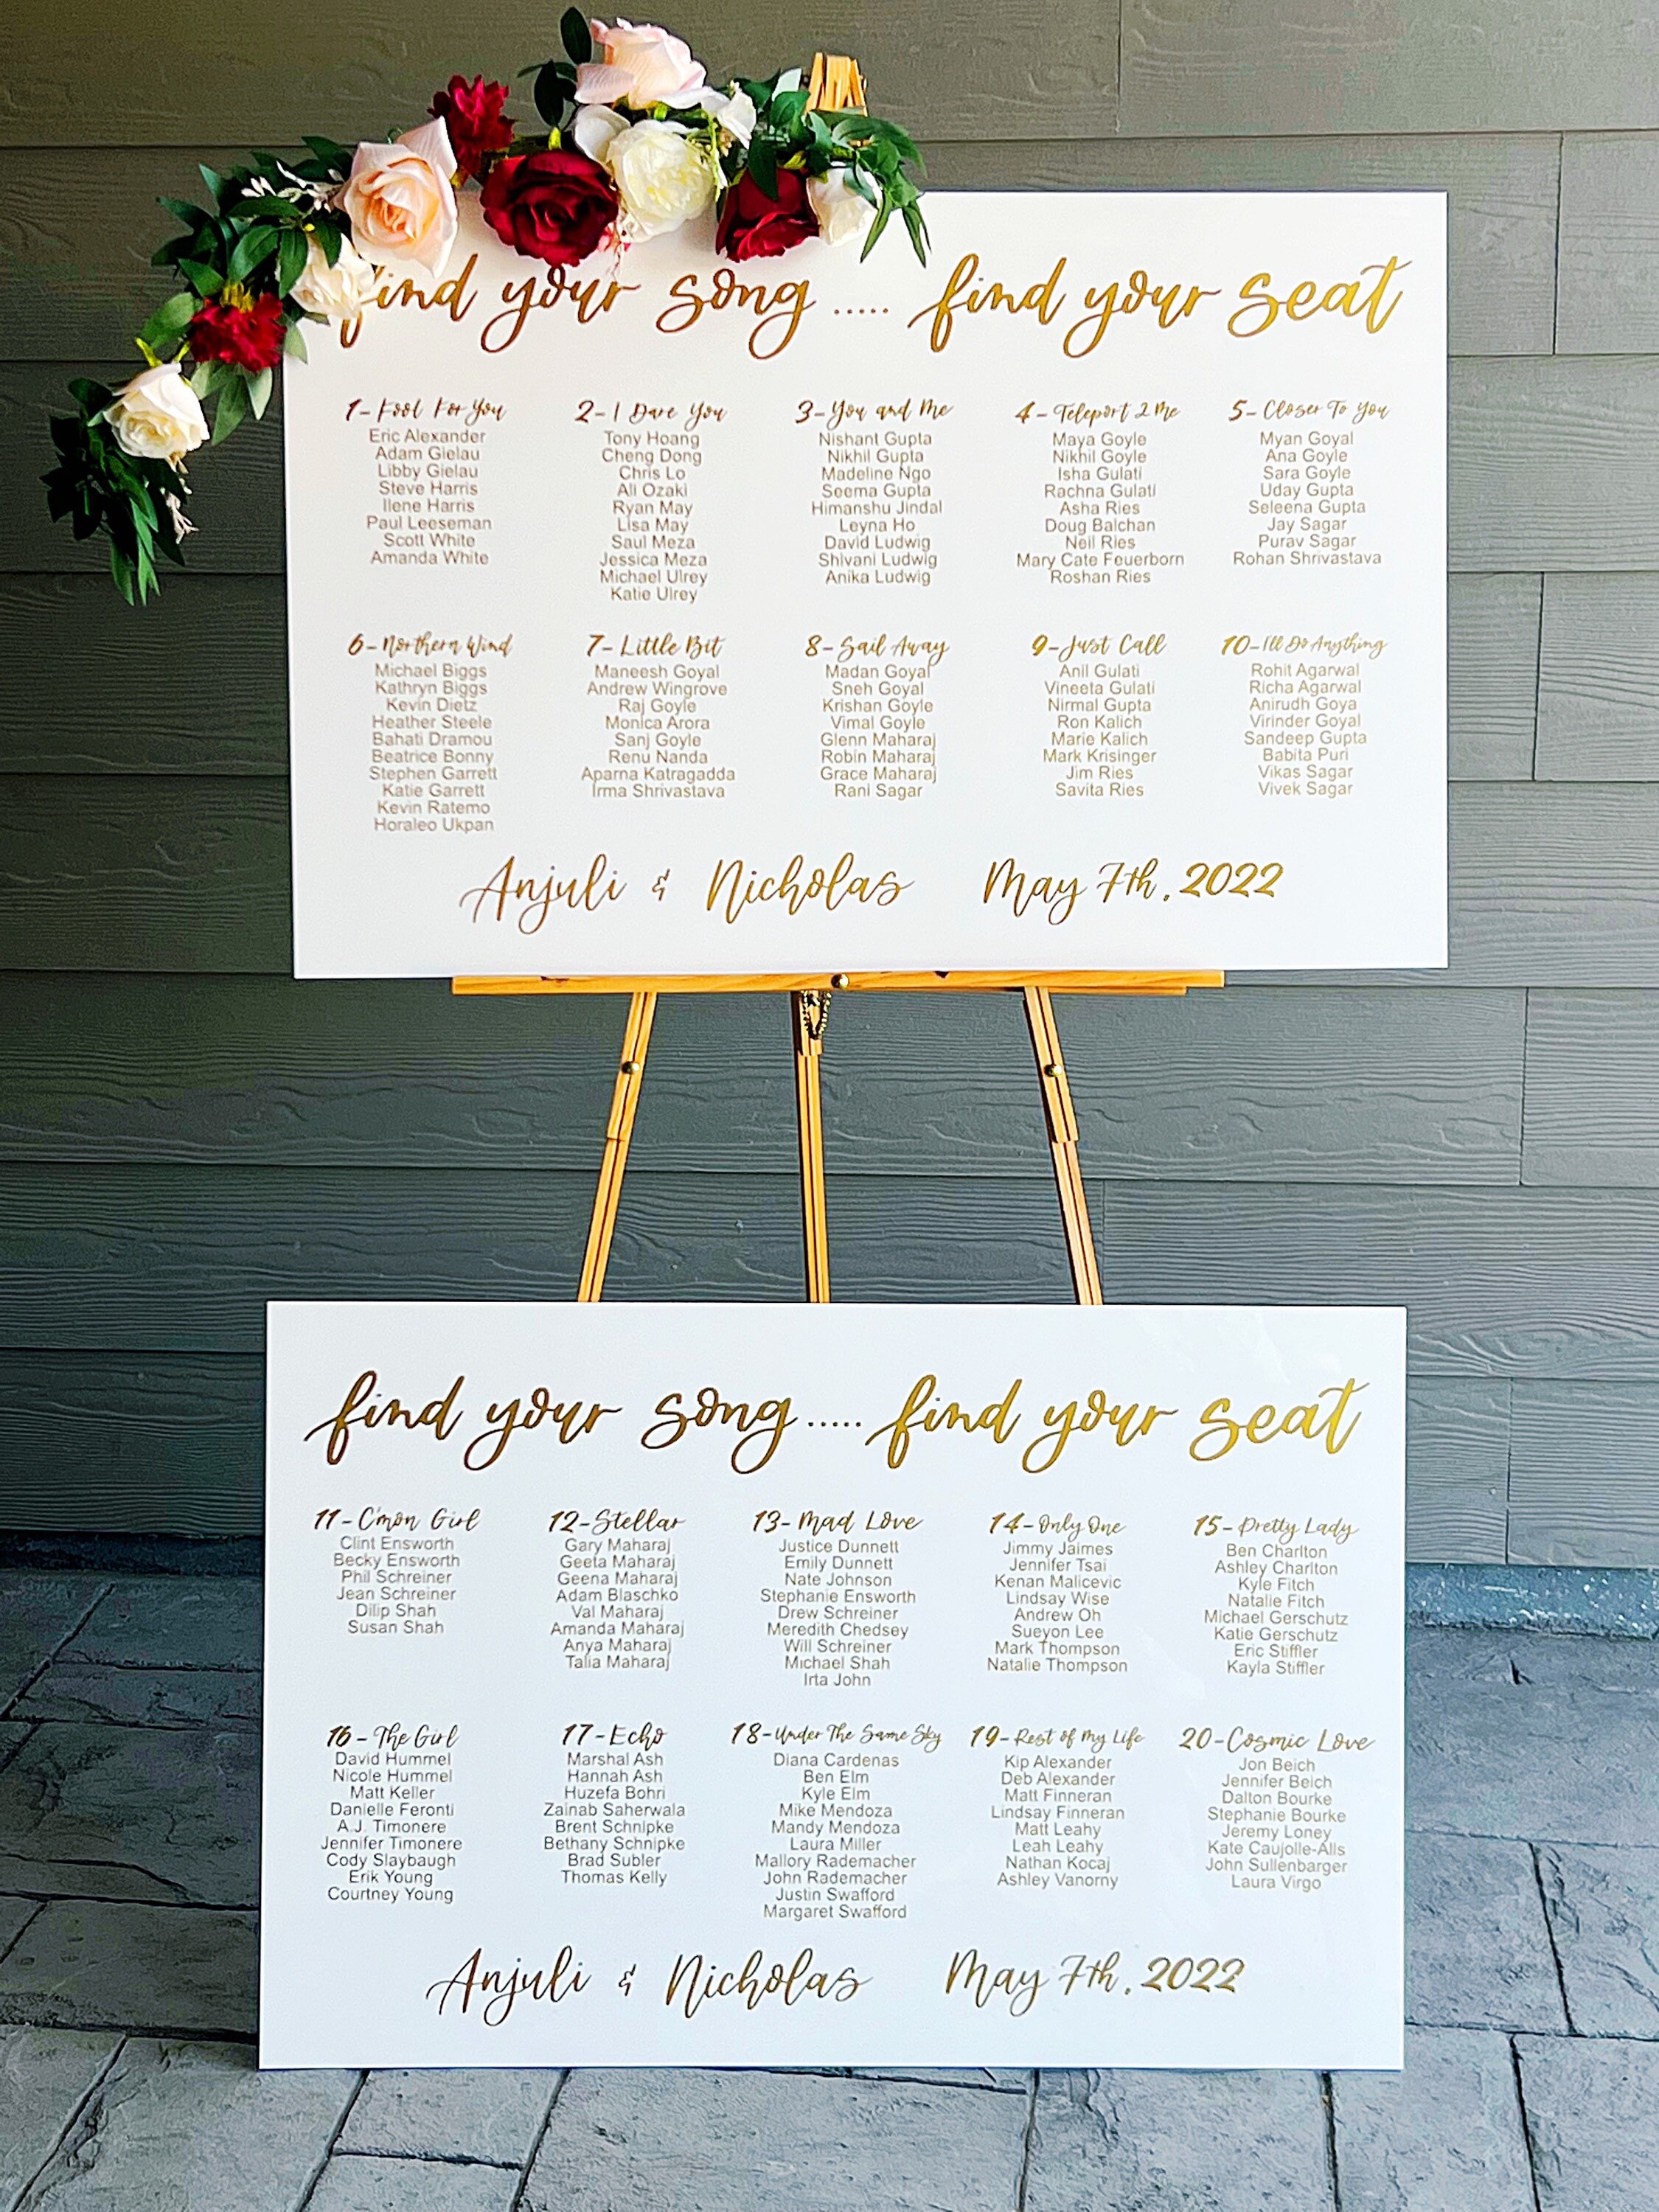 find your song ..... find your seat
1-Fool For You
Eric Alexander
Adam Gielau
Libby Gielau
Steve Harris
Ilene Harris
Paul Leeseman
Scott White
Amanda White
2-I Dare You
Tony Hoang
Cheng Dong
Chris Lo
Ali Ozaki
Ryan May
Lisa May
Saul Meza
Jessica Meza
Michael Ulrey
Katie Ulrey
3-You and Me
Nishant Gupta
Nikhil Gupta
Madeline Ngo
Seema Gupta
Himanshu Jindal
Leyna Ho
David Ludwig
Shivani Ludwig
Anika Ludwig
4-Teleport 2 Me
Maya Goyle
Nikhil Goyle
Isha Gulati
Rachna Gulati
Asha Ries
Doug Balchan
Neil Ries
Mary Cate Feuerborn
Roshan Ries
5-Closer To You
Myan Goyal
Ana Goyle
Sara Goyle
Uday Gupta
Seleena Gupta
Jay Sagar
Purav Sagar
Rohan Shrivastava
6-Northern Wind
Michael Biggs
Kathryn Biggs
Kevin Dietz
Heather Steele
Bahati Dramou
Beatrice Bonny
Stephen Garrett
Katie Garrett
Kevin Ratemo
Horaleo Ukpan
7-Little Bit
Maneesh Goyal
Andrew Wingrove
Raj Goyle
Monica Arora
Sanj Goyle
Renu Nanda
Aparna Katragadda
Irma Shrivastava
8-Sail Away
Madan Goyal
Sneh Goyal
Krishan Goyle
Vimal Goyle
Glenn Maharaj
Robin Maharaj
Grace Maharaj
Rani Sagar
9-Just Call
Anil Gulati
Vineeta Gulati
Nirmal Gupta
Ron Kalich
Marie Kalich
Mark Krisinger
Jim Ries
Savita Ries
10-I'll Do Anything
Rohit Agarwal
Richa Agarwal
Anirudh Goya
Virinder Goyal
Sandeep Gupta
Babita Puri
Vikas Sagar
Vivek Sagar
Anjuli & Nicholas May 7th, 2022
find your song ..... find your seat
11-C'mon Girl
Clint Ensworth
Becky Ensworth
Phil Schreiner
Jean Schreiner
Dilip Shah
Susan Shah
12-Stellar
Gary Maharaj
Geeta Maharaj
Geena Maharaj
Adam Blaschko
Val Maharaj
Amanda Maharaj
Anya Maharaj
Talia Maharaj
13-Mad Love
Justice Dunnett
Emily Dunnett
Nate Johnson
Stephanie Ensworth
Drew Schreiner
Meredith Chedsey
Will Schreiner
Michael Shah
Irta John
14-Only One
Jimmy Jaimes
Jennifer Tsai
Kenan Malicevic
Lindsay Wise
Andrew Oh
Sueyon Lee
Mark Thompson
Natalie Thompson
15-Pretty Lady
Ben Charlton
Ashley Charlton
Kyle Fitch
Natalie Fitch
Michael Gerschutz
Katie Gerschutz
Eric Stiffler
Kayla Stiffler
16-The Girl
David Hummel
Nicole Hummel
Matt Keller
Danielle Feronti
A.J. Timonere
Jennifer Timonere
Cody Slaybaugh
Erik Young
Courtney Young
17-Echo
Marshal Ash
Hannah Ash
Huzefa Bohri
Zainab Saherwala
Brent Schnipke
Bethany Schnipke
Brad Subler
Thomas Kelly
18-Under The Same Sky
Diana Cardenas
Ben Elm
Kyle Elm
Mike Mendoza
Mandy Mendoza
Laura Miller
Mallory Rademacher
John Rademacher
Justin Swafford
Margaret Swafford
19-Rest of My Life
Kip Alexander
Deb Alexander
Matt Finneran
Lindsay Finneran
Matt Leahy
Leah Leahy
Nathan Kocaj
Ashley Vanorny
20-Cosmic Love
Jon Beich
Jennifer Beich
Dalton Bourke
Stephanie Bourke
Jeremy Loney
Kate Caujolle-Alls
John Sullenbarger
Laura Virgo
Anjuli & Nicholas May 7th, 2022